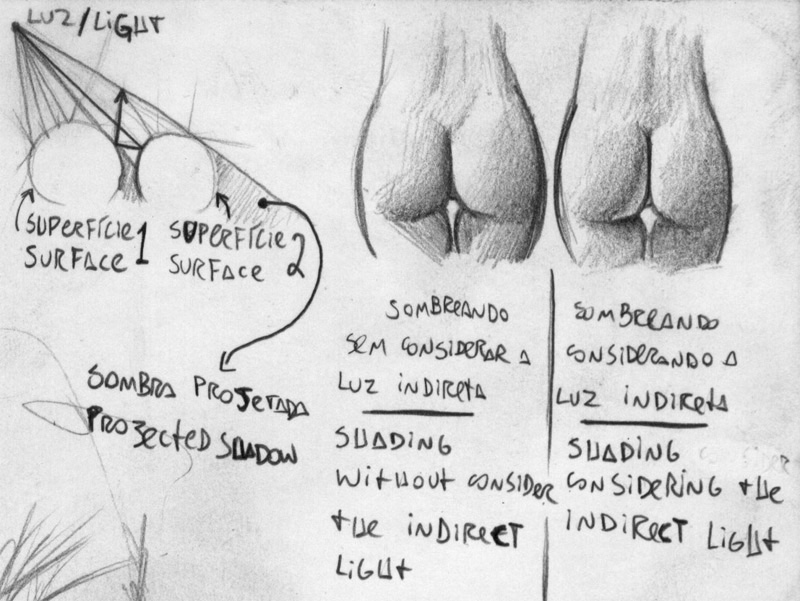 LUZ/LIGHT
SUPERFÍCIE 1
SURFACE
SUPERFÍCIE 2
SURFACE
SOMBRA PROJETADA
PROJECTED SHADOW
SOMBREANDO
SEM CONSIDERAR A
LUZ INDIRETA
SHADING
WITHOUT CONSIDER
THE INDIRECT
LIGHT
SOMBREANDO
CONSIDERANDO A
LUZ INDIRETA
SHADING
CONSIDERING THE
INDIRECT LIGHT